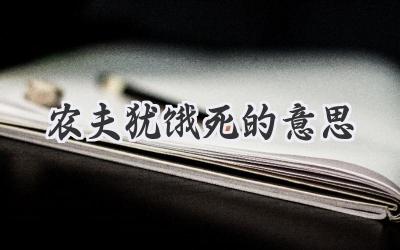 农夫犹饿死的意思